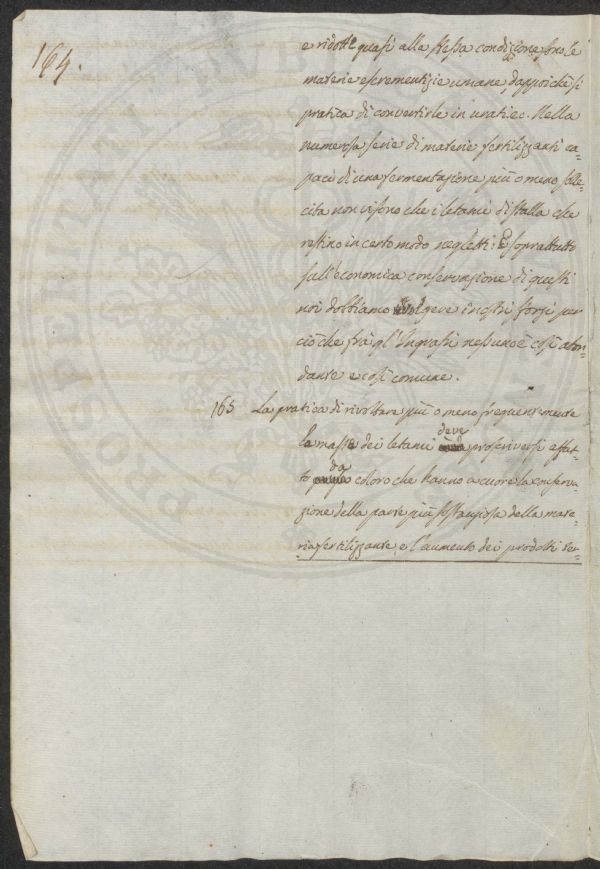 164.
e ridotte quasi alla stessa condizione sono le
materie escrementizie umane, dappoichè si
pratica di convertirle in urate ec. Nella
numerosa serie di materie fertilizzanti ca=
paci di una fermentazione più o meno solle=
cita non vi sono che i letami di stalla che
restino in certo modo negletti: E soprattutto
sull'economica conservazione di questi
noi dobbiamo volgere i nostri sforzi per
ciò che frà gl'Ingrassi nessuno è così abon=
dante e così comune.
165 La pratica di rivoltare più o meno frequentemente
la massa dei letami deve proscriversi affat=
to da coloro che hanno a cuore la conserva=
zione della parte più sostanziosa della mate=
ria fertilizzante, e l'aumento dei prodotti ter=